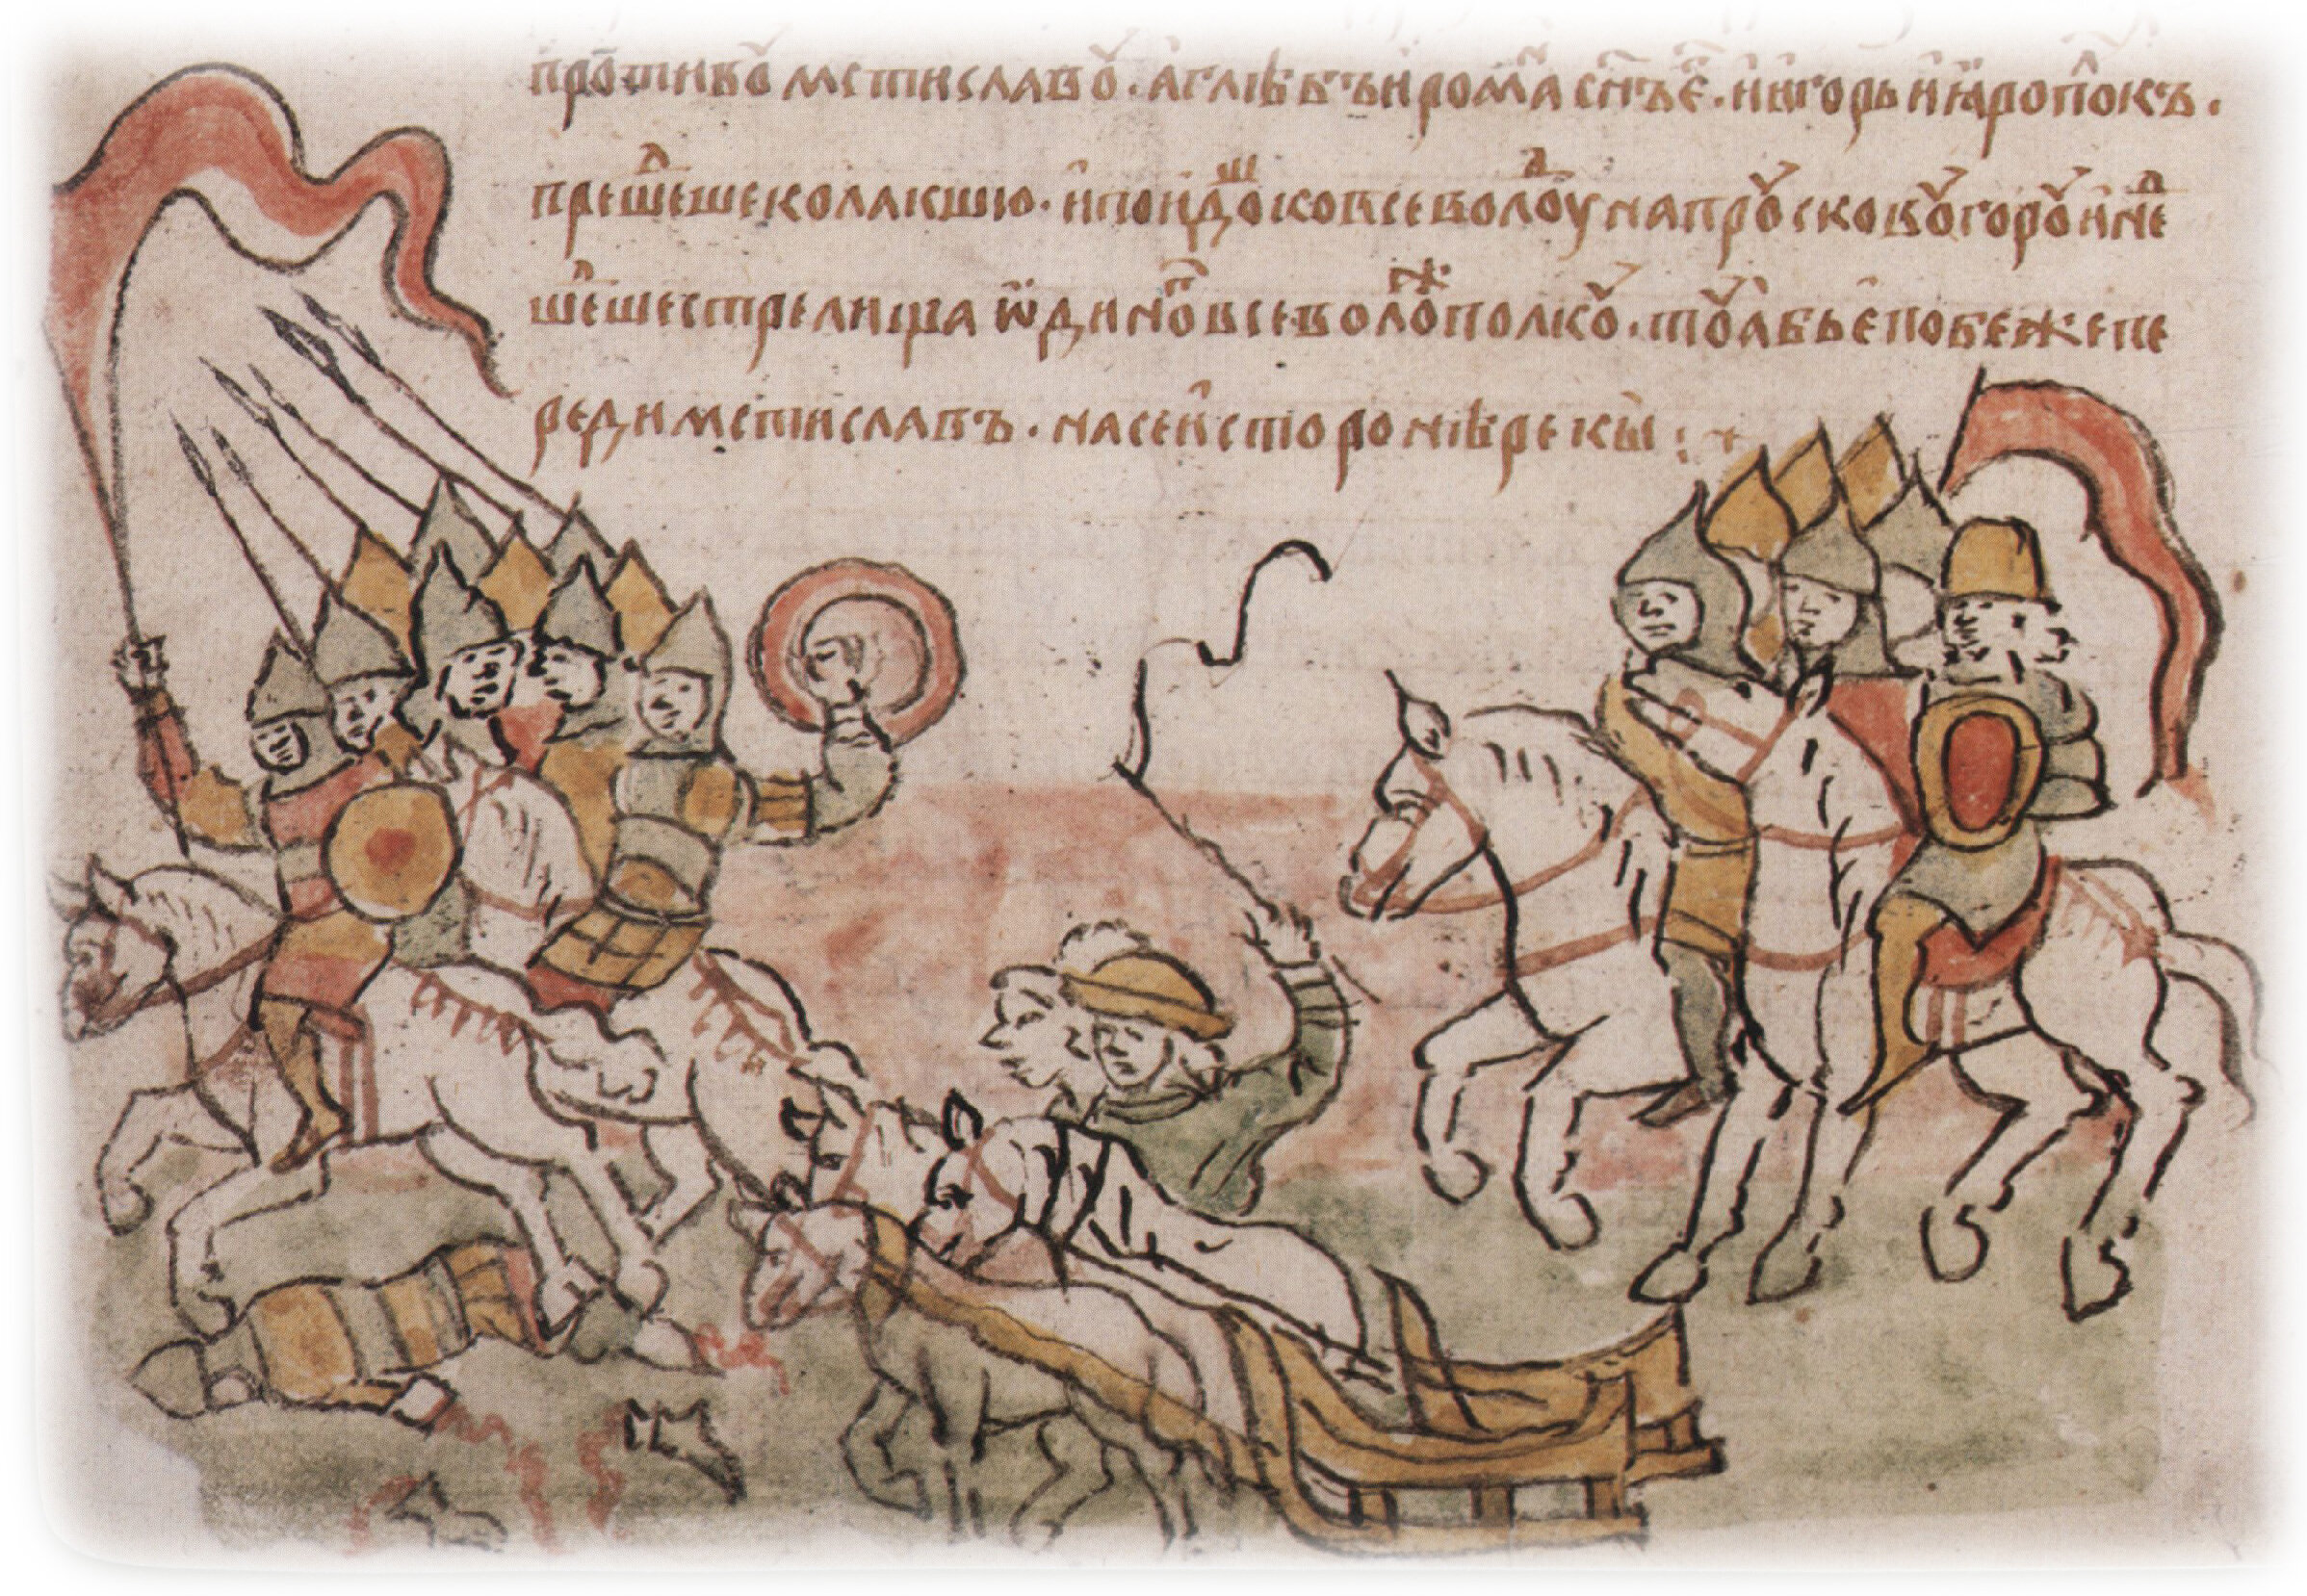 противꙋ мстиславꙋ · а глѣбъ и рома сн҃ъ е · и игорь и ꙗропокъ ·
преⷣшеше колакшю · и поидоⷲ ко всеволоⷣу на прꙋсковꙋ горꙋ и неⷣ
шеⷣше стрелища ѿ диноⷢ всеволоⷤ полкꙋ · тꙋ абье побеже пе
реди мстиславъ · на сеи сторонѣ рекы :